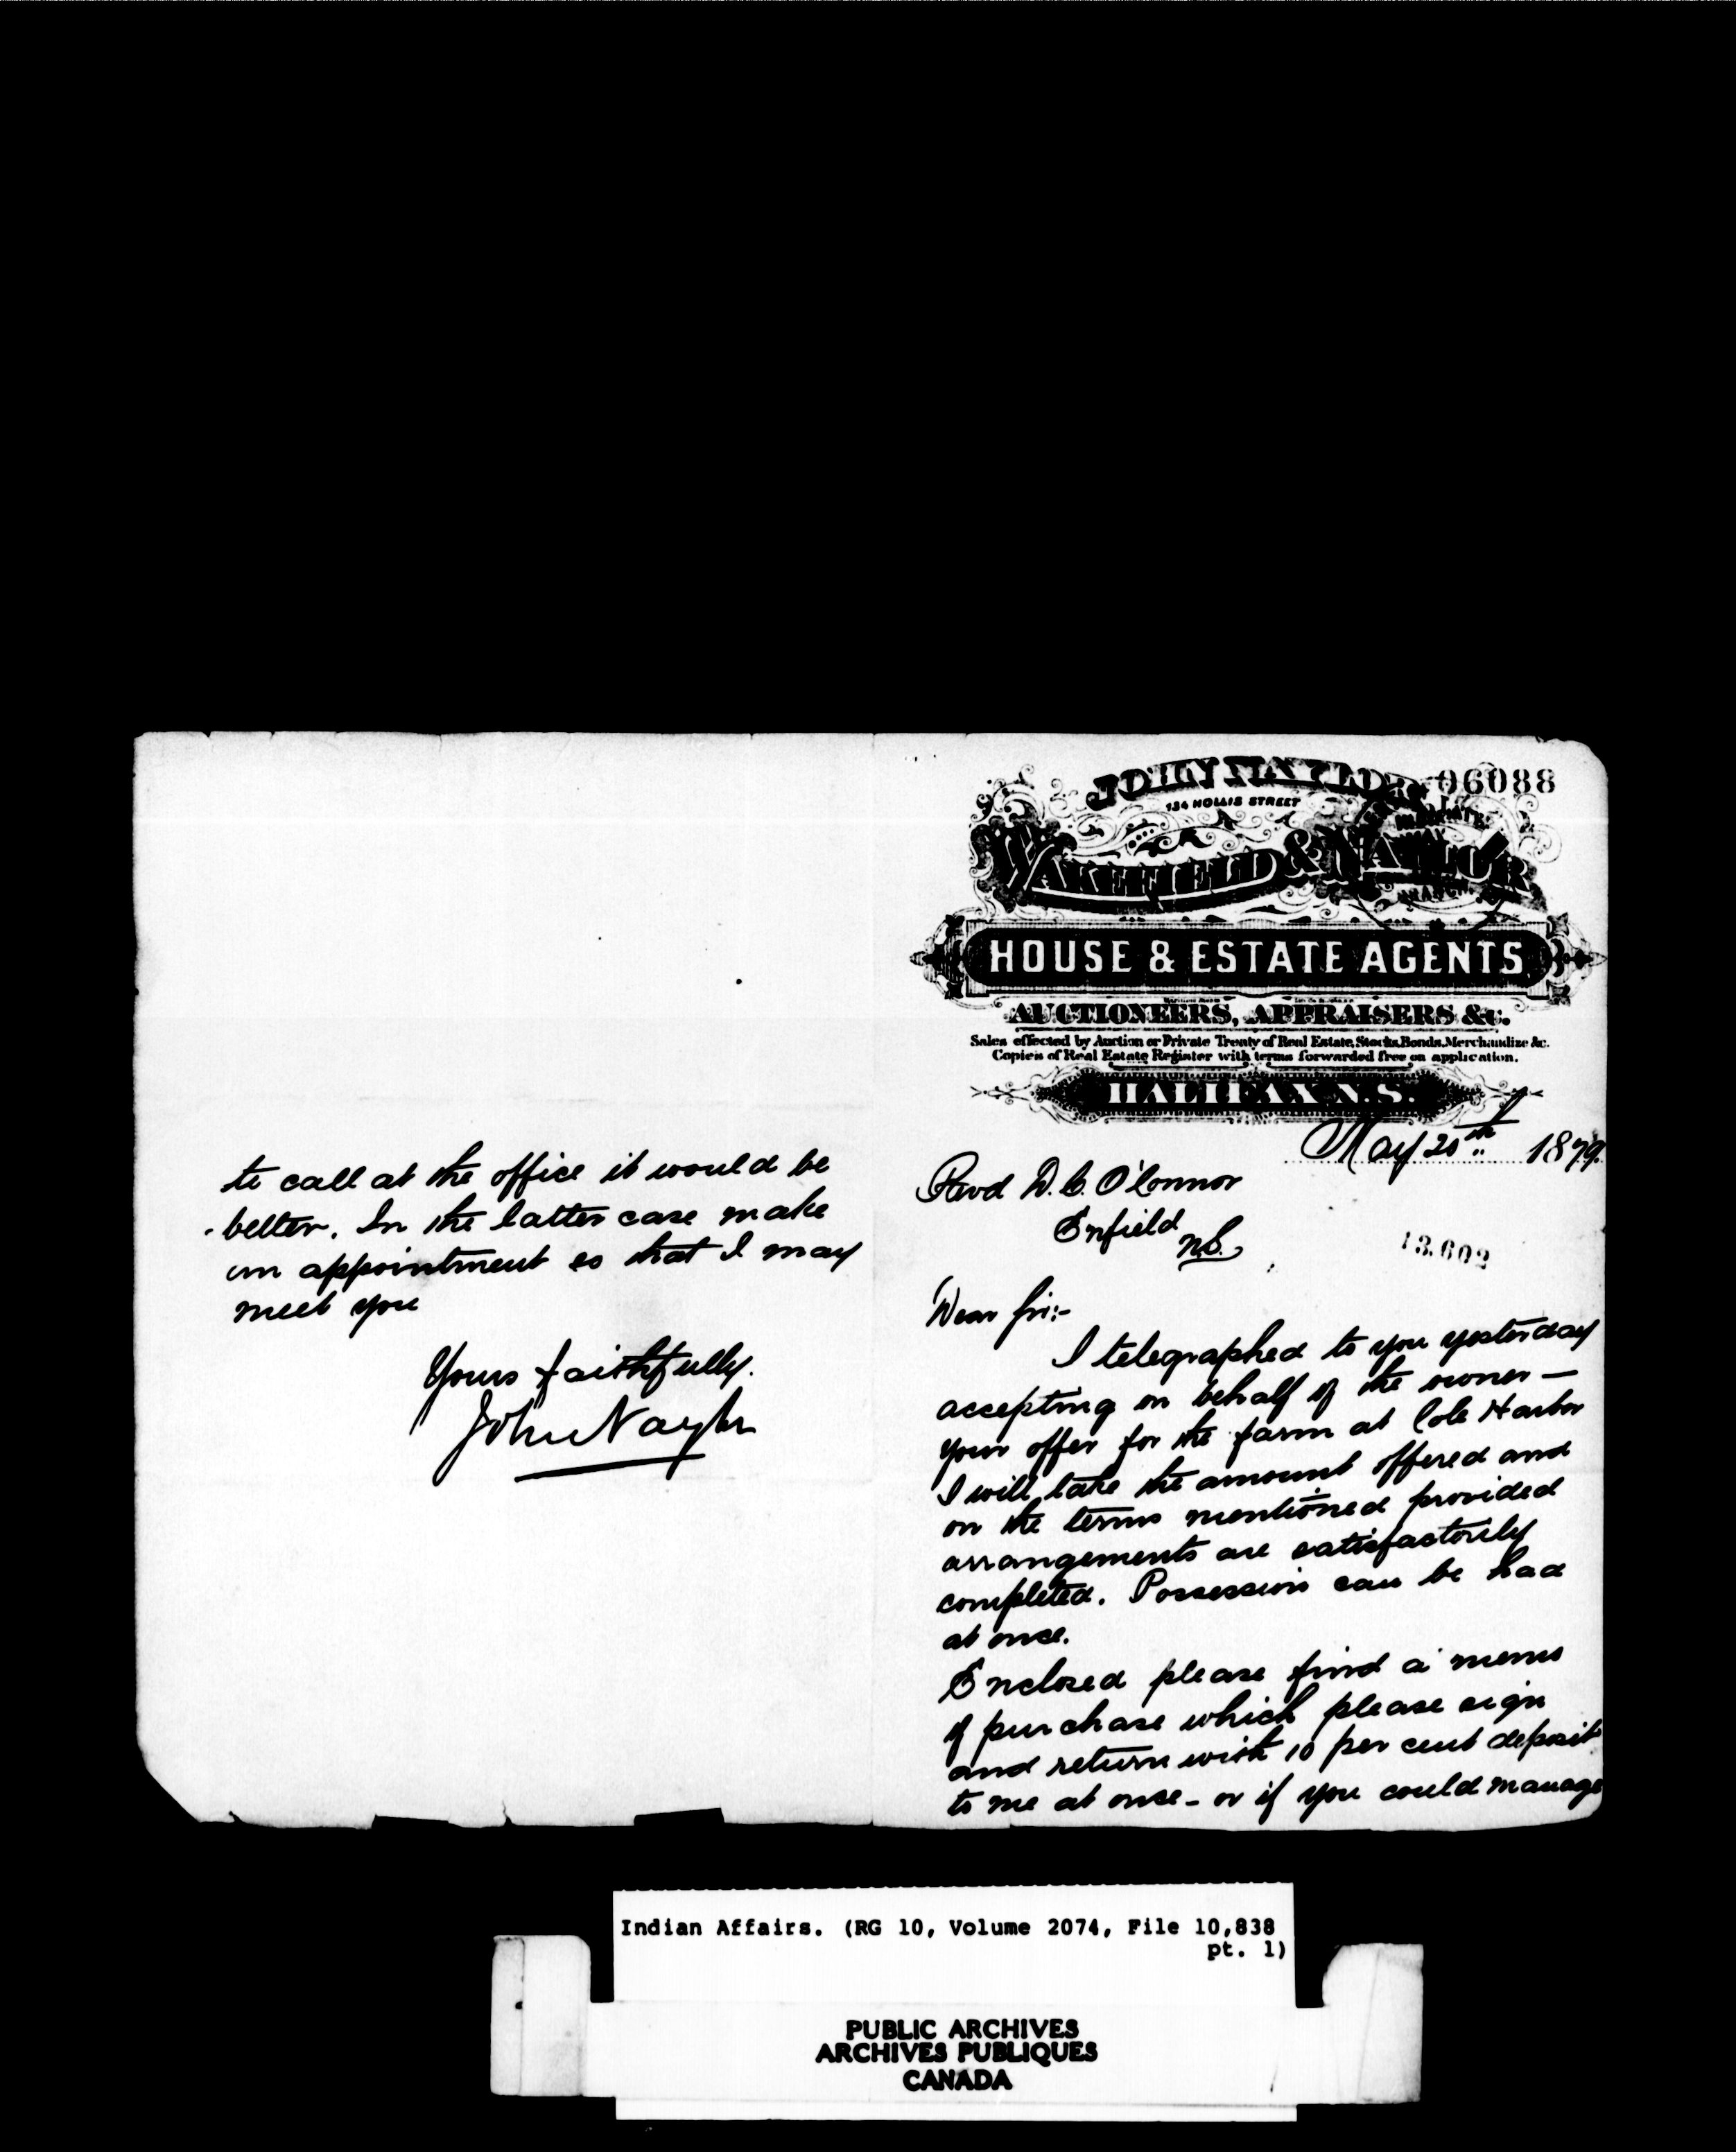 JOHN NAYLOR
06088
134 HOLLIS STREET
WAKEFIELD & NAYLOR
HOUSE & ESTATE AGENTS
AUCTIONEERS, APPRAISERS &c.
Sales effected by Auction or Private Treaty of Real Estate, Stocks, Bonds, Merchandize &c.
Copies of Real Estate Register with terms forwarded free on application.
HALIFAX N.S.
May 20th 1879.
Revd D. C. O'Connor
Enfield
N.S.
13.602
Dear Sir:-
I telegraphed to you yesterday
accepting on behalf of the owner —
your offer for the farm at Cole Harbor
I will take the amount offered and
on the terms mentioned provided
arrangements are satisfactorily
completed. Possession can be had
at once.
Enclosed please find a memo
of purchase which please sign
and return with 10 per cent deposit
to me at once - or if you could manage
to call at the office it would be
better. In the latter case make
an appointment so that I may
meet you
Yours faithfully.
John Naylor
Indian Affairs. (RG 10, Volume 2074, File 10,838
pt. 1)
PUBLIC ARCHIVES
ARCHIVES PUBLIQUES
CANADA